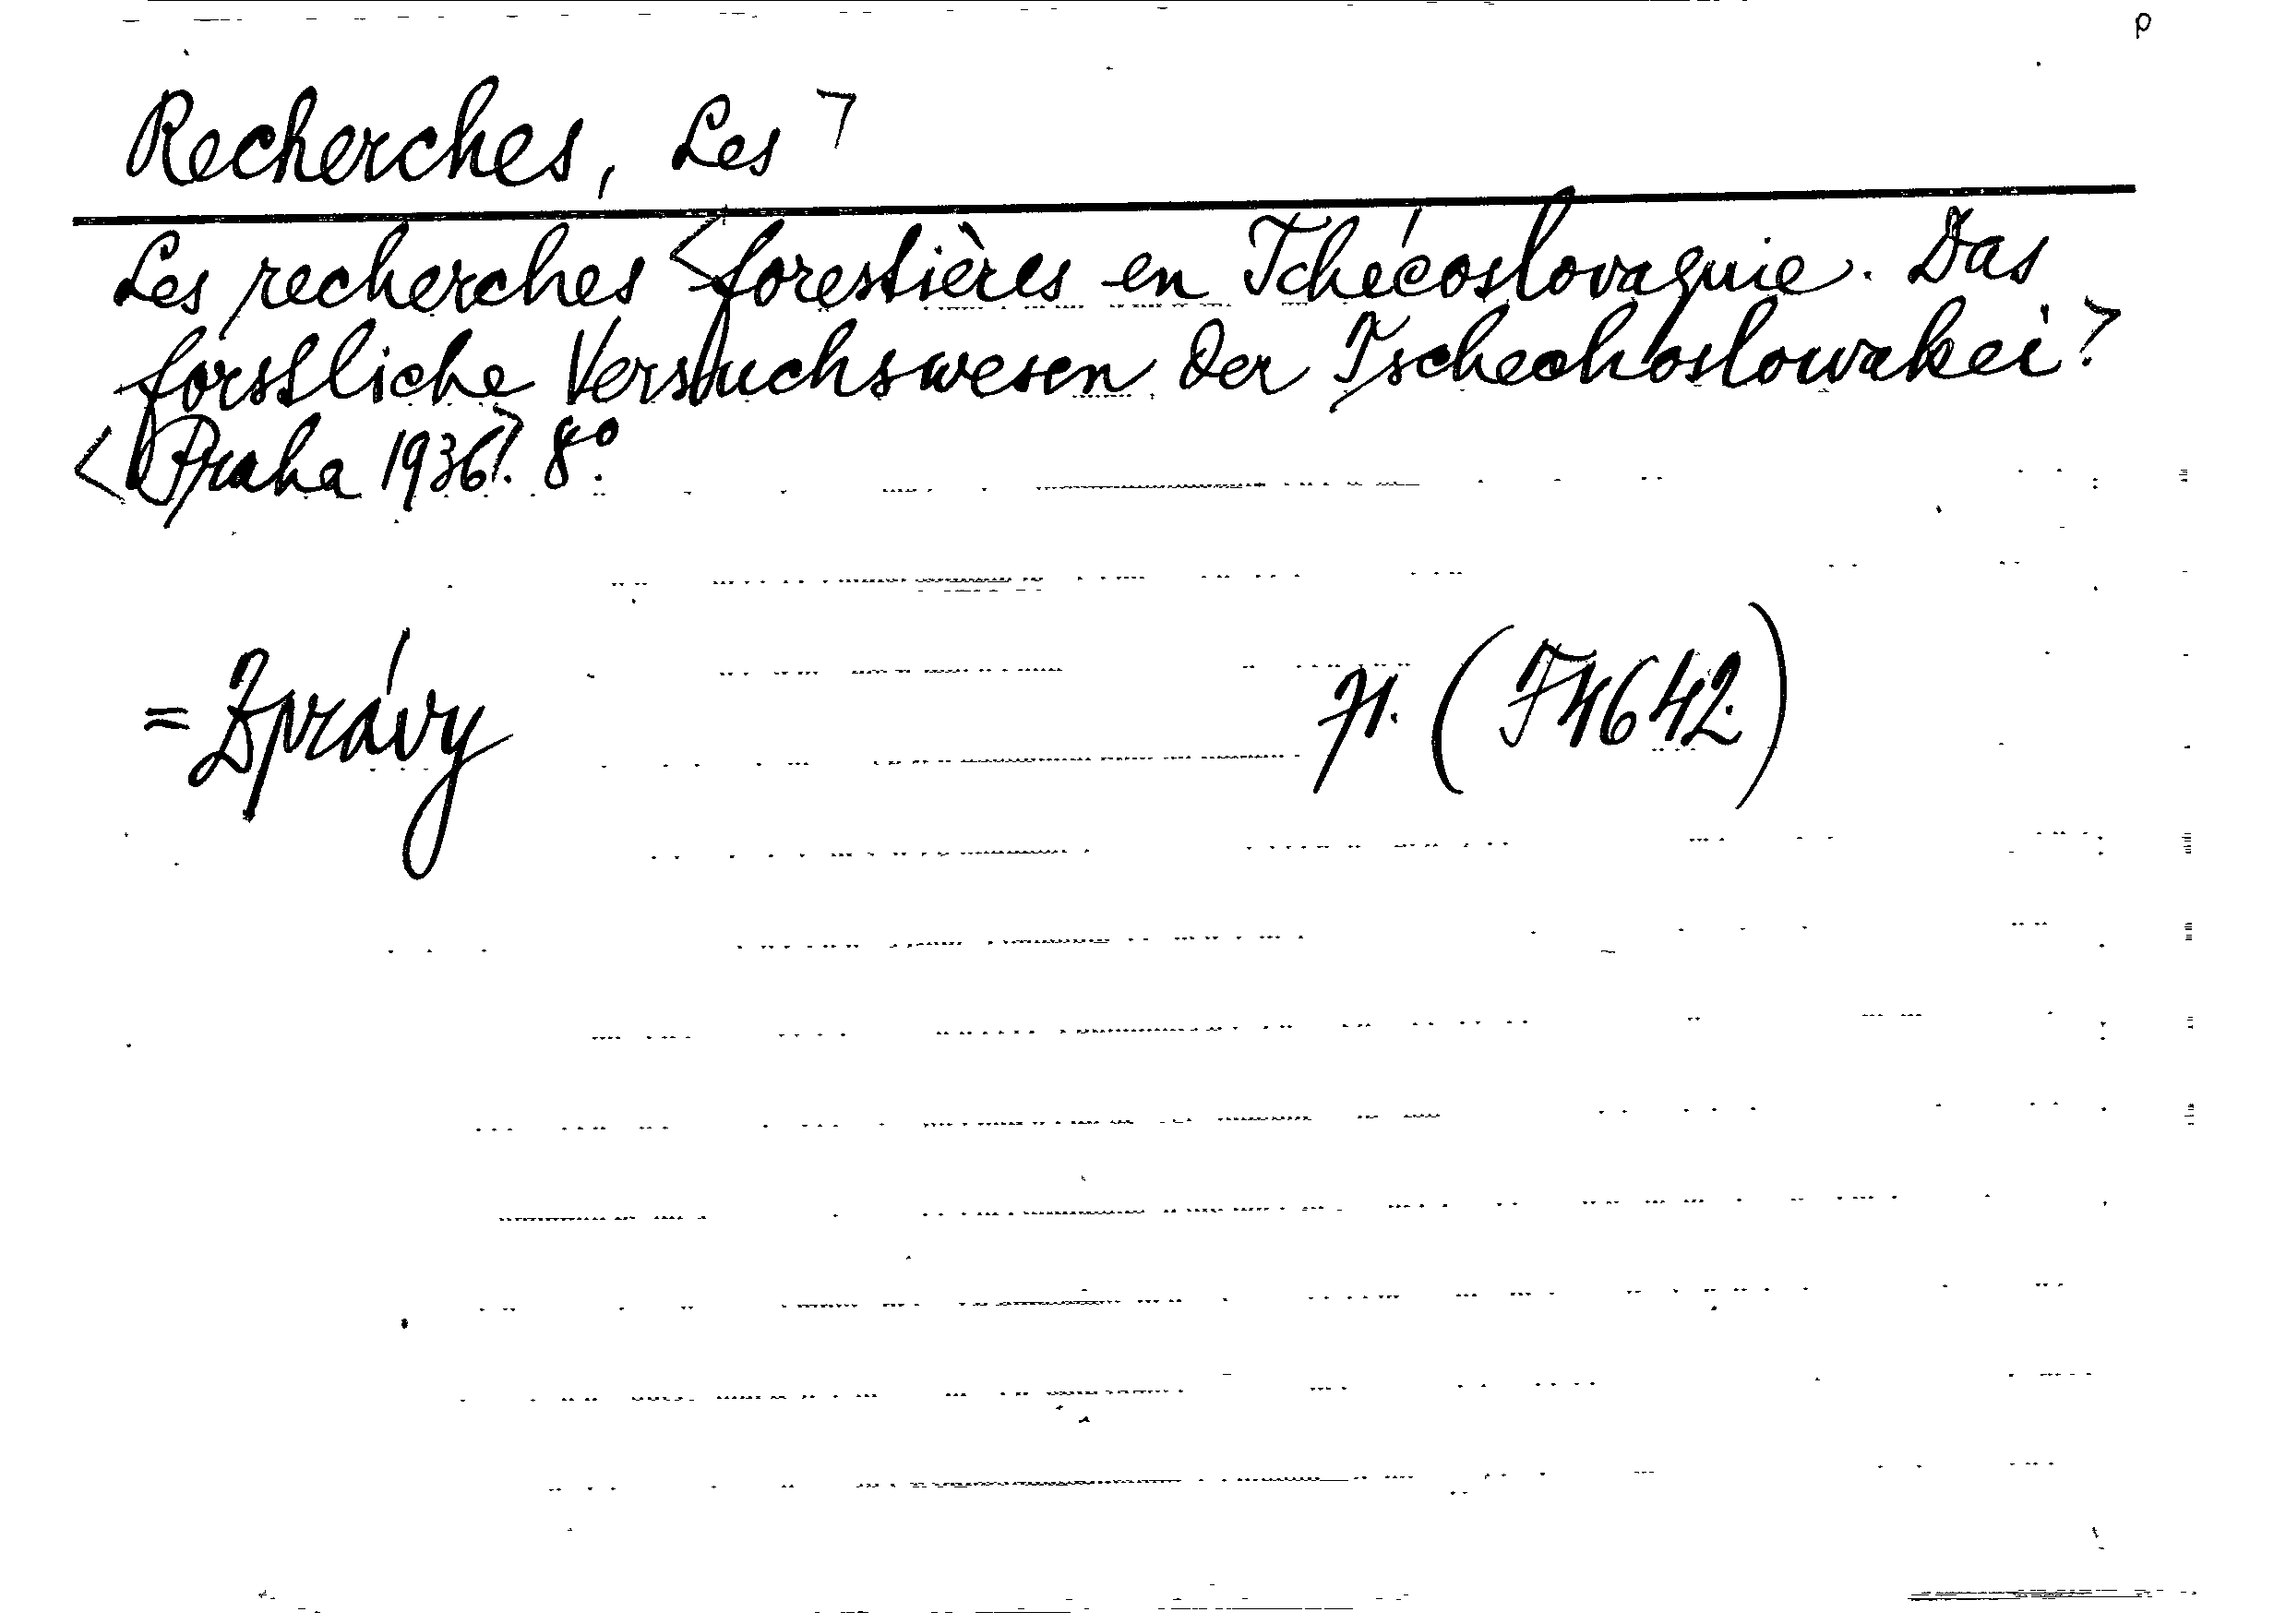 p
Recherches, Les >
Les recherches <forestières en Tchécoslovaquie. Das
forstliche Versuchswesen der Tschechoslowakei>
<Praha 1936>. 8°.
= Zprávy